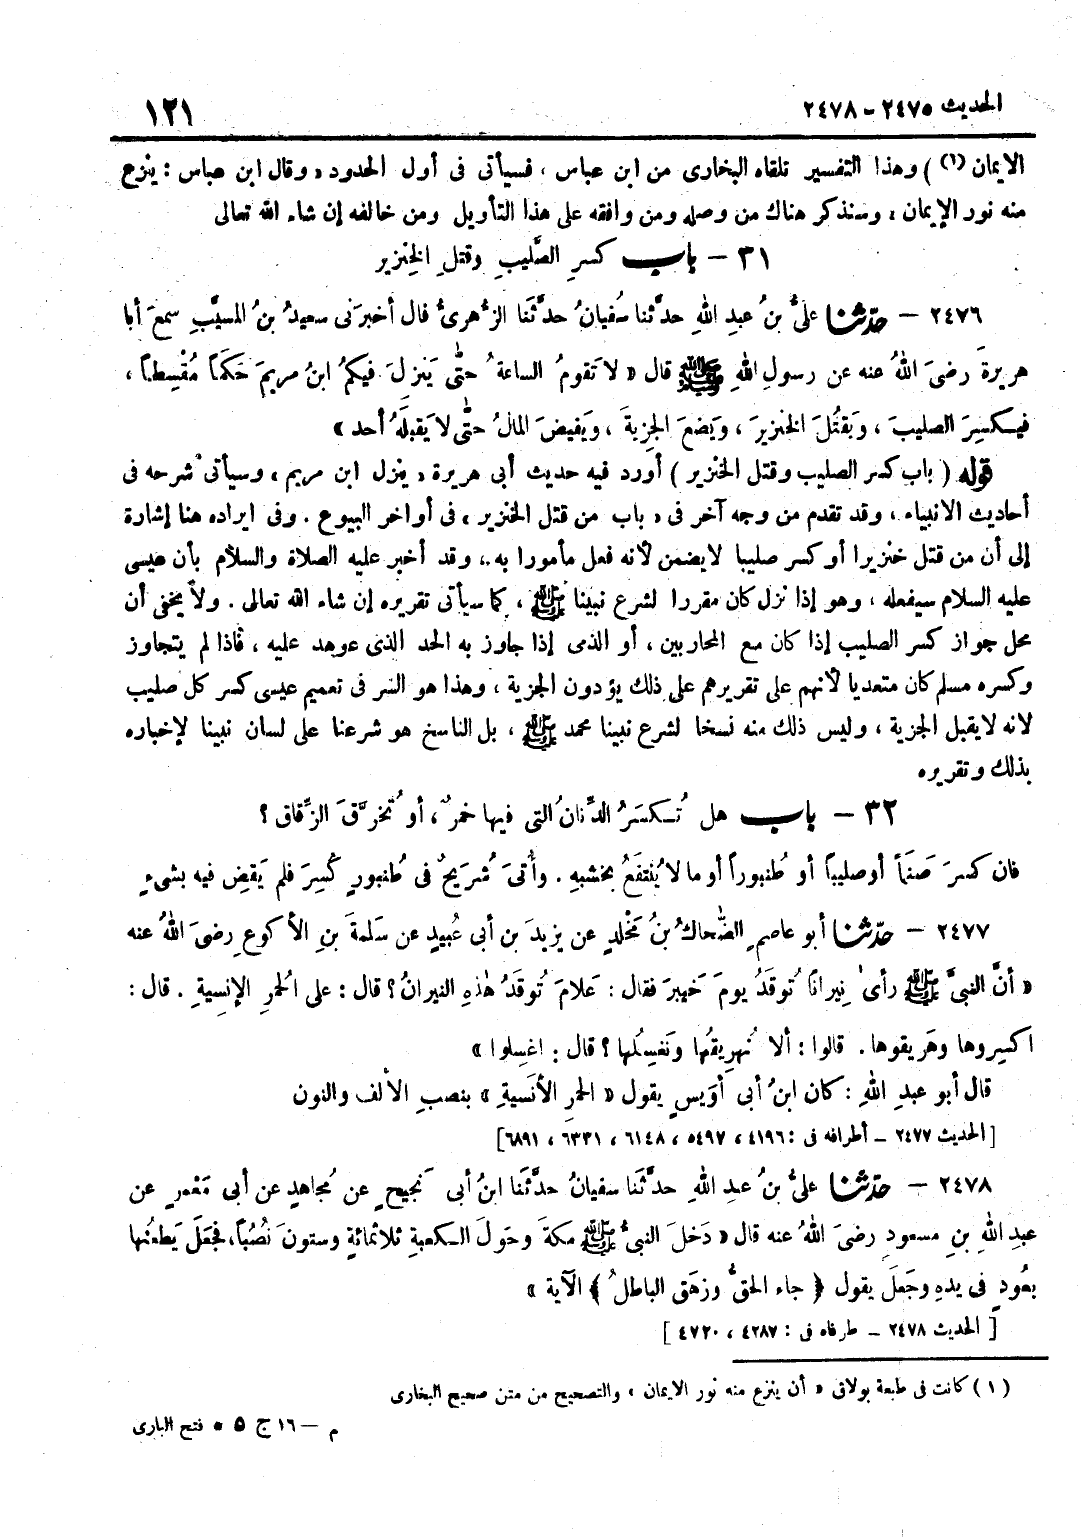 الحديث ٢٤٧٥ - ٢٤٧٨
١٢١
الايمان (١) ) وهذا التفسير تلقاه البخارى من ابن عباس ، فسيأتى فى أول الحدود « وقال ابن عباس : ينزع
منه نور الإيمان » وسنذكر هناك من وصله ومن وافقه على هذا التأويل ومن خالفه إن شاء الله تعالى
٣١ - باب كسرِ الصَّليبِ وقتلِ الخِنزير
٢٤٧٦ - حدّثنا علىُّ بنُ عبدِ اللهِ حدَّثنا سُفيانُ حدَّثَنا الزُّهرىُّ قال أخبرَنى سعيدُ بنُ المسيَّبِ سمعَ أبا
هريرةَ رضىَ اللهُ عنه عن رسولِ اللهِ ﷺ قال « لا تَقومُ الساعةُ حتّى يَنزِلَ فيكمُ ابنُ مريمَ حَكَماً مُقْسِطاً ،
فيَكسِرَ الصليبَ ، ويَقتُلَ الخنزيرَ ، ويَضعَ الجِزيةَ ، ويَفيضَ المالُ حتّى لا يَقبلَهُ أحد »
قوله ( باب كسر الصليب وقتل الخنزير ) أورد فيه حديث أبى هريرة « ينزل ابن مريم » وسيأتى شرحه فى
أحاديث الانبياء ، وقد تقدم من وجه آخر فى « باب من قتل الخنزير » فى أواخر البيوع . وفى ايراده هنا إشارة
إلى أن من قتل خنزيرا أو كسر صليبا لا يضمن لأنه فعل مأمورا به ، وقد أخبر عليه الصلاة والسلام بأن عيسى
عليه السلام سيفعله ، وهو إذا نزل كان مقررا لشرع نبينا ﷺ ، كما سيأتى تقريره إن شاء الله تعالى . ولا يخفى أن
محل جواز كسر الصليب إذا كان مع المحاربين ، أو الذمى إذا جاوز به الحد الذى عوهد عليه ، فاذا لم يتجاوز
وكسره مسلم كان متعديا لأنهم على تقريرهم على ذلك يؤدون الجزية ، وهذا هو السر فى تعميم عيسى كسر كل صليب
لانه لا يقبل الجزية ، وليس ذلك منه نسخا لشرع نبينا محمد ﷺ ، بل الناسخ هو شرعنا على لسان نبينا لإخباره
بذلك وتقريره
٣٢ - باب هل تُكسَرُ الدِّنانُ التى فيها خمرٌ ، أو تُخرَّقَ الزِّقاق ؟
فان كسرَ صَنَماً أو صليباً أو طُنبوراً أو ما لا يُنتفَعُ بخشبهِ . وأُتىَ شُرَيحٌ فى طُنبورٍ كُسِرَ فلم يَقضِ فيه بشىءٍ
٢٤٧٧ - حدّثنا أبو عاصمٍ الضَّحاكُ بنُ مَخْلدٍ عن يزيدَ بن أبى عُبيدٍ عن سَلَمةَ بنِ الأكوعِ رضىَ اللهُ عنه
« أنَّ النبىَّ ﷺ رأى نِيراناً تُوقَدُ يومَ خَيبرَ فقال : عَلامَ تُوقَدُ هٰذهِ النيرانُ ؟ قال : على الحُمرِ الإنسِيةِ . قال :
اكسِروها وهَرِيقوها . قالوا : ألا نُهرِيقُها ونَغسِلُها ؟ قال : اغسِلوا »
قال أبو عبدِ اللهِ : كان ابنُ أبى أوَيسٍ يقول « الحمرِ الأنَسيةِ » بنصبِ الألف والنون
[ الحديث ٢٤٧٧ - أطرافه فى : ٤١٩٦ ، ٥٤٩٧ ، ٦١٤٨ ، ٦٣٣١ ، ٦٨٩١ ]
٢٤٧٨ - حدّثنا علىُّ بنُ عبدِ اللهِ حدَّثَنا سفيانُ حدَّثَنا ابنُ أبى نَجيحٍ عن مُجاهدٍ عن أبى مَعْمرٍ عن
عبدِ اللهِ بنِ مسعودٍ رضىَ اللهُ عنه قال « دَخلَ النبىُّ ﷺ مكةَ وحَولَ الكعبةِ ثلاثمائةٍ وستونَ نُصُباً ، فجعَلَ يَطعُنُها
بعُودٍ فى يدهِ وجَعلَ يقول ﴿ جاء الحقُّ وزهَق الباطلُ ﴾ الآية »
[ الحديث ٢٤٧٨ - طرفاه فى : ٤٢٨٧ ، ٤٧٢٠ ]
( ١ ) كانت فى طبعة بولاق « أن ينزع منه نور الايمان » والتصحيح من متن صحيح البخارى
م - ١٦ ج ٥ * فتح البارى